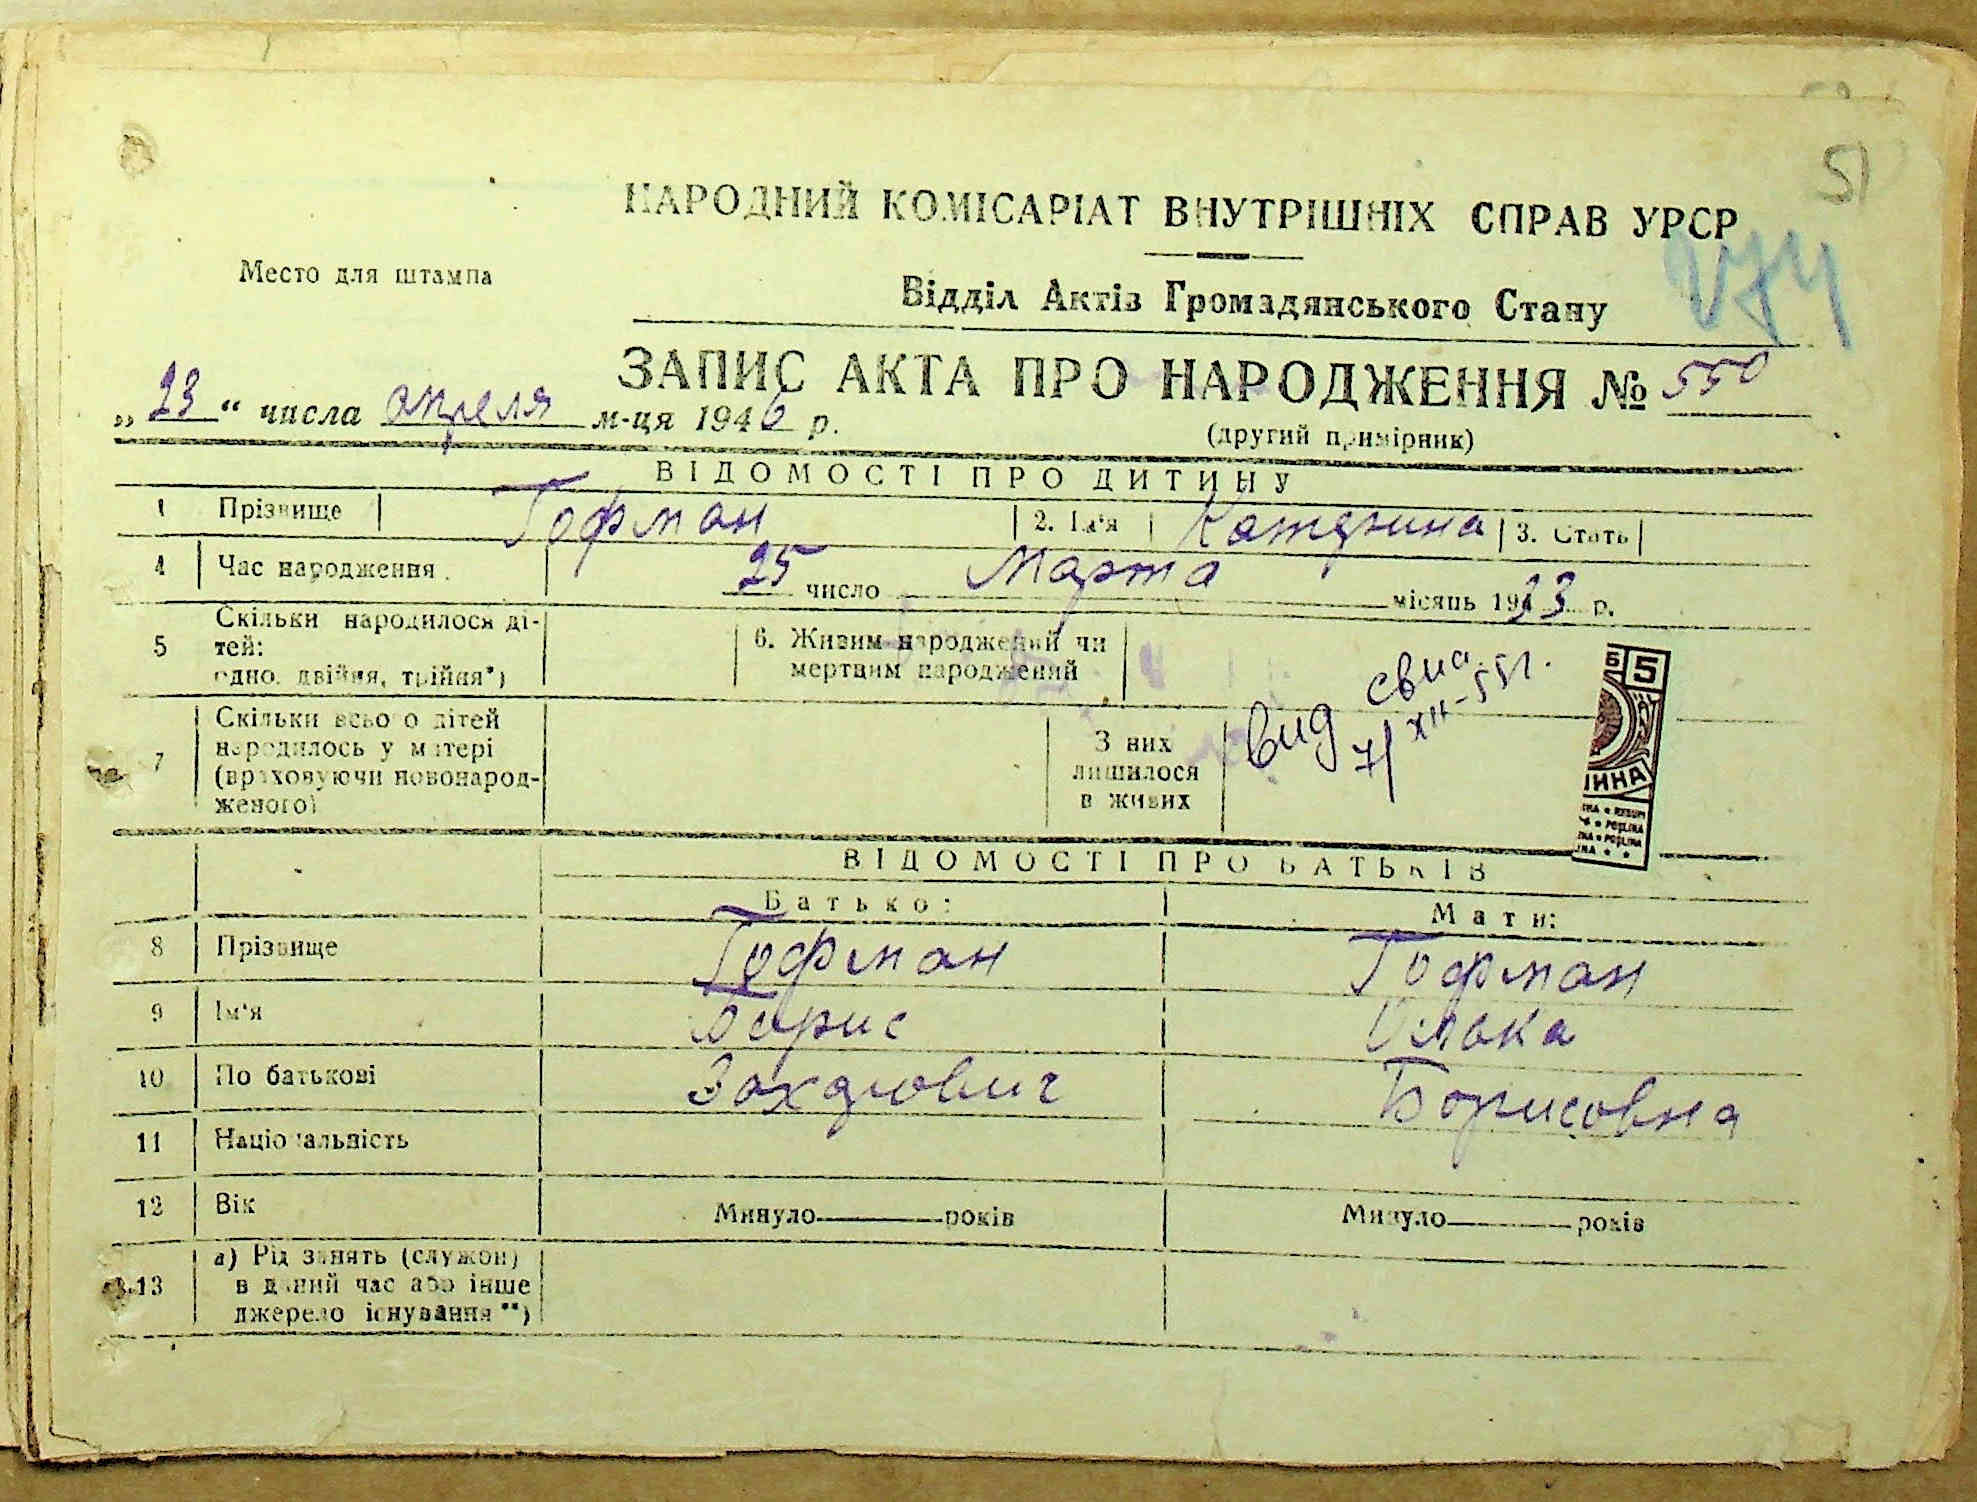 51
НАРОДНИЙ КОМІСАРІАТ ВНУТРІШНІХ СПРАВ УРСР
Место для штампа
Відділ Актів Громадянського Стану
ЗАПИС АКТА ПРО НАРОДЖЕННЯ № 550
„23“ числа апреля м-ця 1946 р.
(другий примірник)
ВІДОМОСТІ ПРО ДИТИНУ
1 Прізвище Гофман 2. Ім'я Катерина 3. Стать
4 Час народження 25 число Марта місяць 1933 р.
5 Скільки народилося ді-
тей:
одно, двійня, трійня*)
6. Живим народжений чи
мертвим народжений
7 Скільки всього дітей
народилось у матері
(враховуючи новонарод-
женого)
З них
лишилося
в живих
вид свид
7/XII-55 г.
5
ВІДОМОСТІ ПРО БАТЬКІВ
Батько: Мати:
8 Прізвище Гофман Гофман
9 Ім'я Борис
10 По батькові Захарович Борисовна
11 Національність
12 Вік Минуло років Минуло років
13 а) Рід занять (служби)
в даний час або інше
джерело існування**)